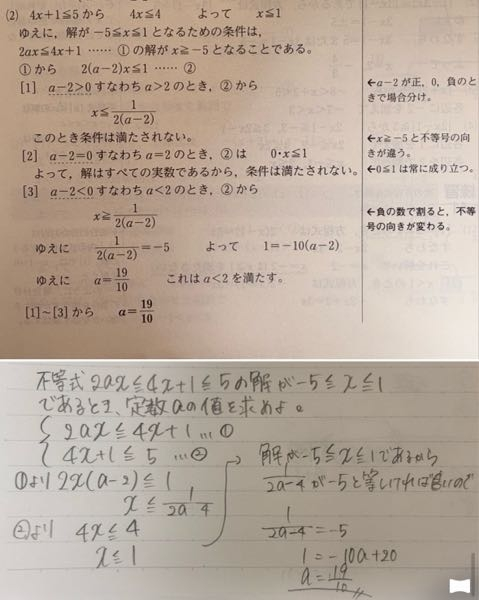 (2) 4x+1≦5 から 4x≦4 よって x≦1
ゆえに,解が −5≦x≦1 となるための条件は,
2ax≦4x+1 …… ① の解が x≧−5 となることである。
①から 2(a−2)x≦1 …… ②
[1] a−2>0 すなわち a>2 のとき,②から
x≦1/2(a−2)
このとき条件は満たされない。
[2] a−2=0 すなわち a=2 のとき,②は 0・x≦1
よって,解はすべての実数であるから,条件は満たされない。
[3] a−2<0 すなわち a<2 のとき,②から
x≧1/2(a−2)
ゆえに 1/2(a−2)=−5 よって 1=−10(a−2)
ゆえに a=19/10 これは a<2 を満たす。
[1]~[3] から a=19/10
←a−2 が正,0,負のと
きで場合分け。
←x≧−5 と不等号の向
きが違う。
←0≦1 は常に成り立つ。
←負の数で割ると,不等
号の向きが変わる。
不等式 2ax≦4x+1≦5 の解が −5≦x≦1
であるとき、定数aの値を求めよ。
2ax≦4x+1 …①
4x+1≦5 …②
①より 2x(a−2)≦1
x≦1/2a−4
②より 4x≦4
x≦1
解が −5≦x≦1 であるから
1/2a−4 が −5 と等しければ良いので
1/2a−4=−5
1=−10a+20
a=19/10